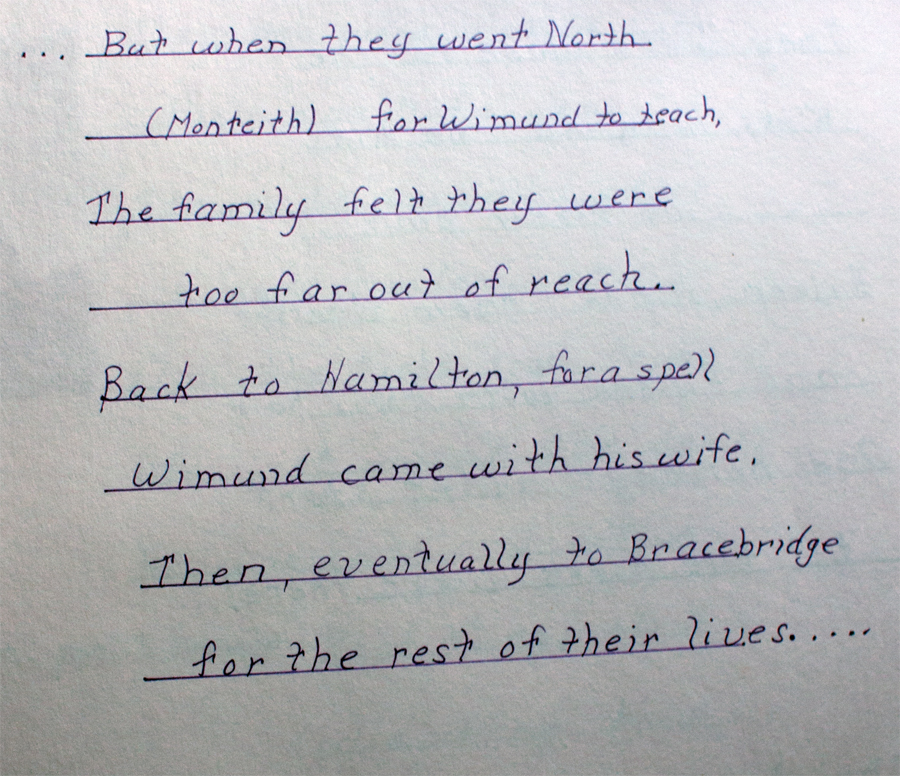 ... But when they went North
(Monteith) for Wimund to teach,
The family felt they were
too far out of reach..
Back to Hamilton, for a spell
Wimund came with his wife.
Then, eventually to Bracebridge
for the rest of their lives.....